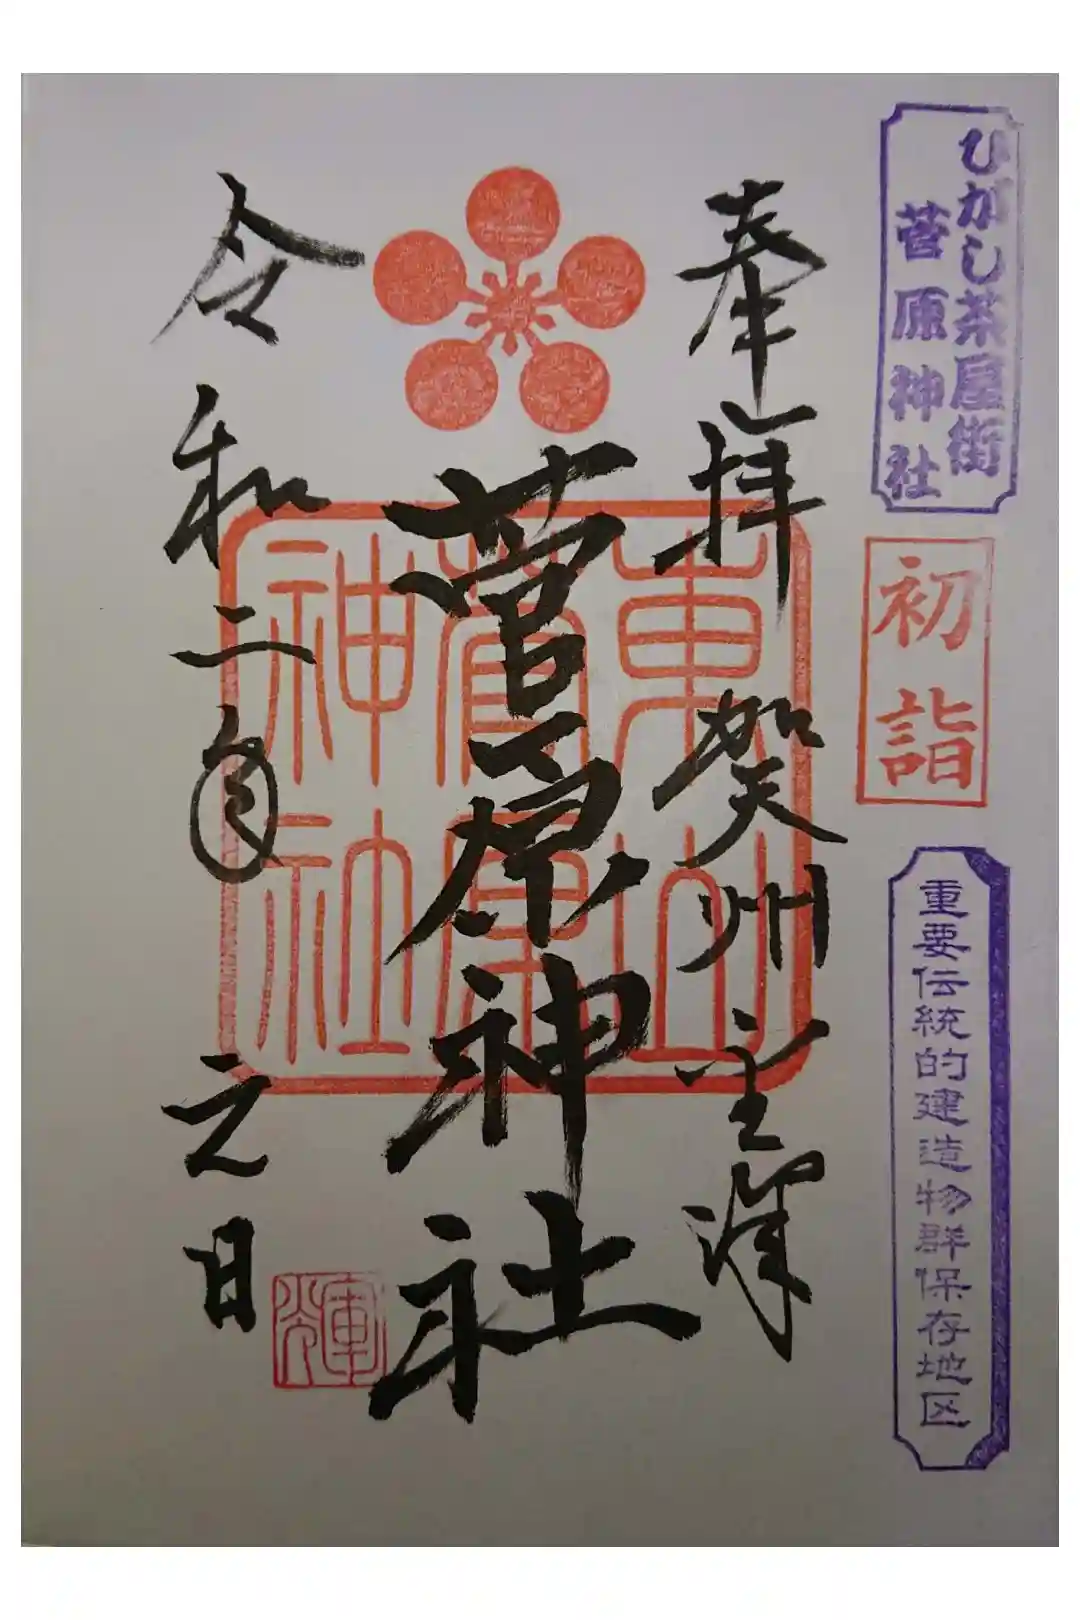 ひがし茶屋街
菅原神社
初詣
重要伝統的建造物群保存地区
奉拝 賀州主渾
菅原神社
東山
菅原
神社
令和二年 元日
輝